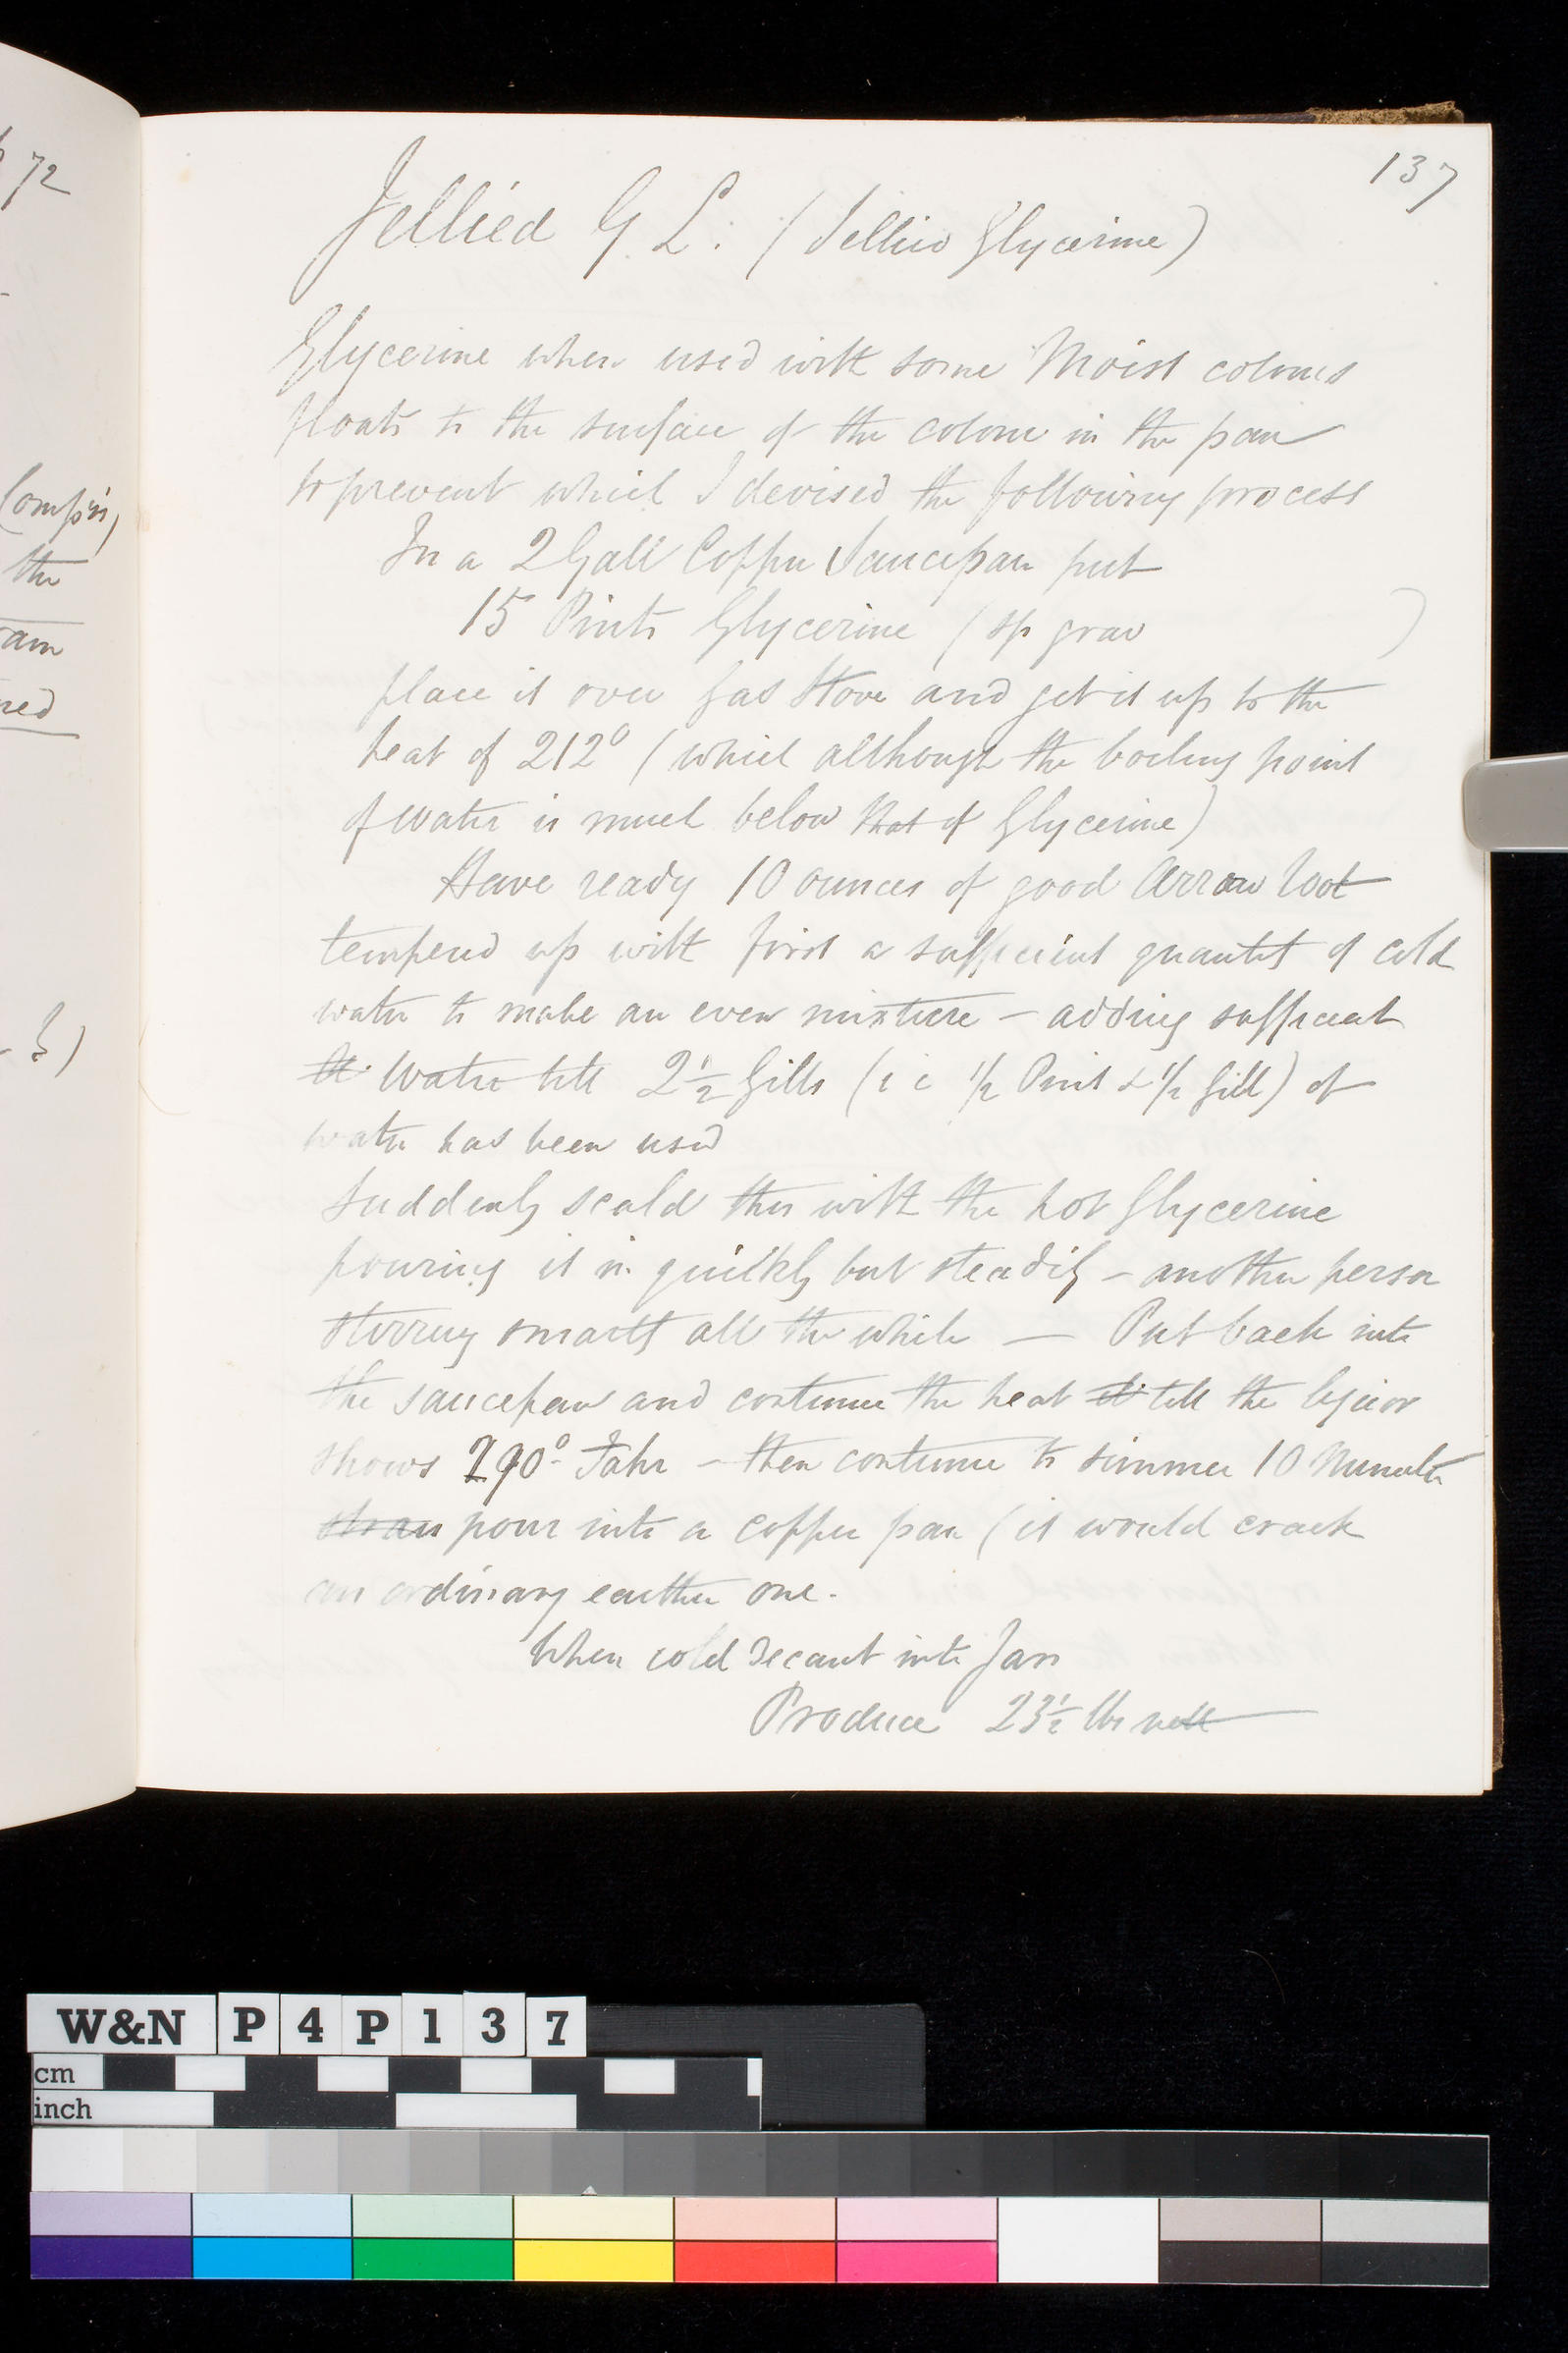 137
Jellied G. L. (Jellied Glycerine)
Glycerine when used with some Moist colours
floats to the surface of the colour in the pan
to prevent which I devised the following process
In a 2 Gall Copper Saucepan put
15 Pints Glycerine (sp grav          )
place it over Gas Stove and get it up to the
heat of 212° (which although the boiling point
of water is much below that of Glycerine)
Have ready 10 ounces of good Arrow Root
tempered up with first a sufficient quantity of cold
water to make an even mixture - adding sufficient
Water till 2½ Gills (i e ½ Pint & ½ Gill) of
water has been used
Suddenly scald this with the hot Glycerine
pouring it in quickly but steadily - another person
stirring smartly all the while — Put back into
the saucepan and continue the heat till the liquor
shows 290° Fahr - then continue to simmer 10 Minutes
strain pour into a copper pan (it would crack
an ordinary earthen one.
When cold decant into Jars
Produce 23½ lbs nett
p 72
Comp'n,
the
am
red
W&N P4P137
cm
inch